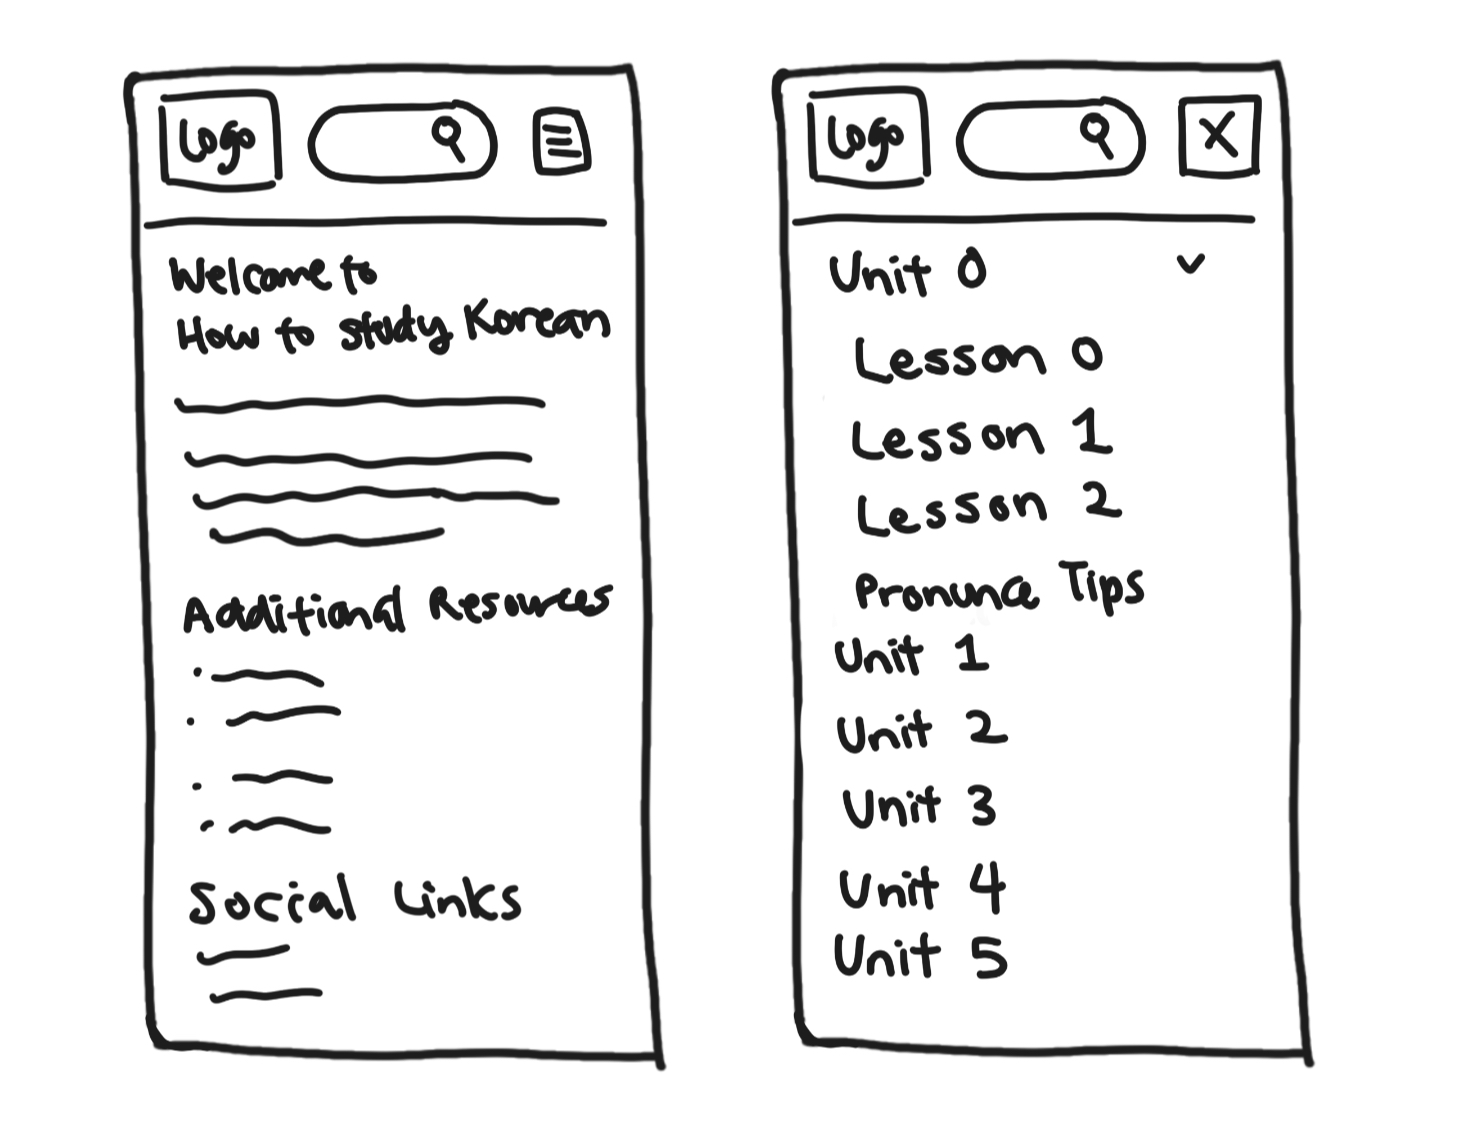 Logo
Welcome to
How to study Korean
Additional Resources
Social Links
Logo
X
Unit 0
Lesson 0
Lesson 1
Lesson 2
Pronunce Tips
Unit 1
Unit 2
Unit 3
Unit 4
Unit 5